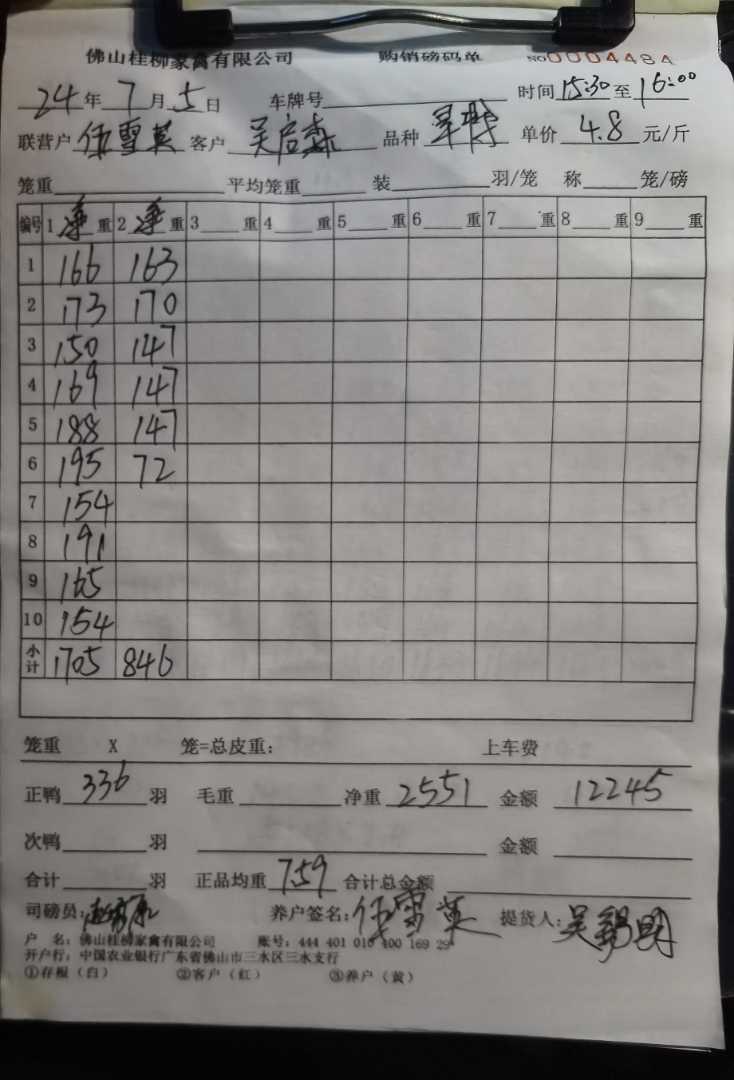 佛山桂柳家禽有限公司 购销磅码单 NO 0004484
24年7月5日 车牌号 时间 15:30 至 16:00
联营户 任雪英 客户 吴启森 品种 单价 4.8 元/斤
笼重 平均笼重 装 羽/笼 称 笼/磅
编号 1 净 重 2 净 重 3 重 4 重 5 重 6 重 7 重 8 重 9 重
1 166 163
2 173 170
3 150 147
4 169 147
5 188 147
6 195 72
7 154
8 191
9 165
10 154
小计 1705 846
笼重 X 笼=总皮重: 上车费
正鸭 336 羽 毛重 净重 2551 金额 12245
次鸭 羽 金额
合计 羽 正品均重 759 合计总金额
司磅员: 养户签名: 任雪英 提货人: 吴锡明
户 名: 佛山桂柳家禽有限公司 账号: 444 401 010 400 169 29
开户行: 中国农业银行广东省佛山市三水区三水支行
①存根（白） ②客户（红） ③养户（黄）